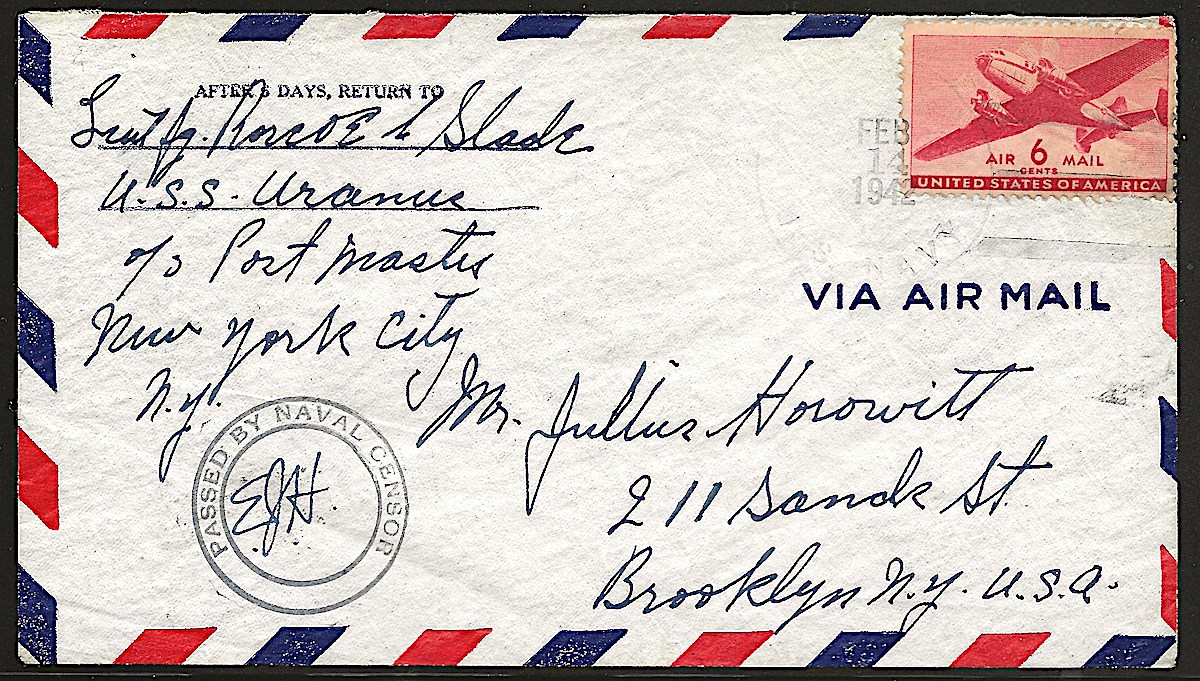 AFTER 5 DAYS, RETURN TO
Lieut jg. Roscoe L Slade
U.S.S. Uranus
c/o Post Master
New York City
N.Y.
FEB
14
1942
U.S. NAVY
AIR 6 MAIL
CENTS
UNITED STATES OF AMERICA
VIA AIR MAIL
Mr. Jullius Horowitt
211 Sands St.
Brooklyn N.Y. U.S.A.
PASSED BY NAVAL CENSOR
EJH